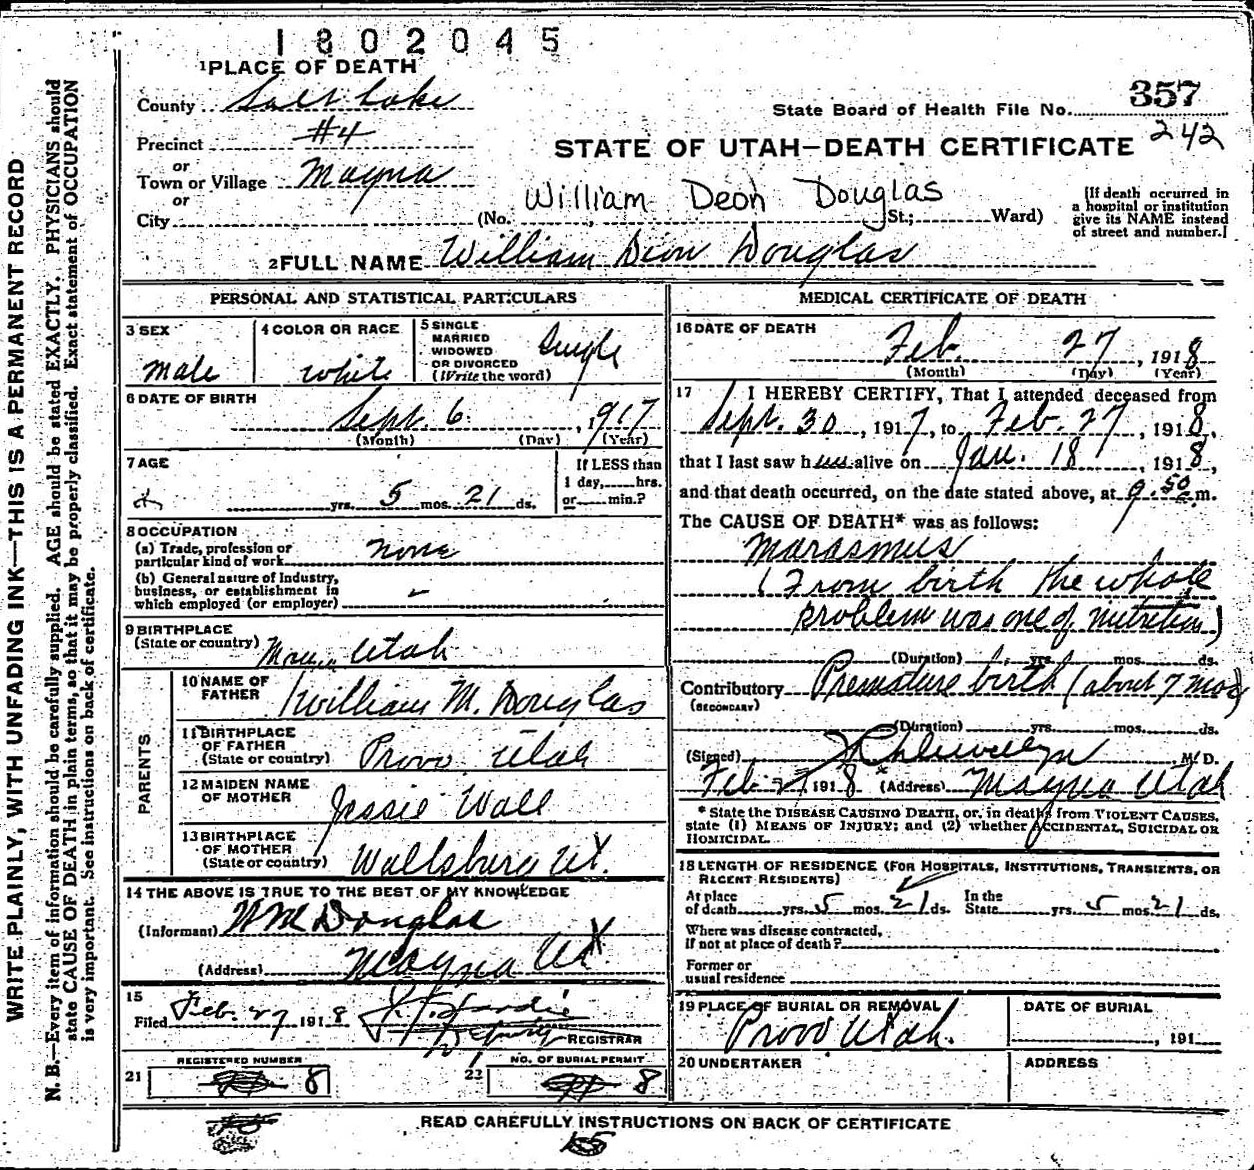 1802045
1 PLACE OF DEATH
County Salt Lake
State Board of Health File No. 357
Precinct #4
242
STATE OF UTAH—DEATH CERTIFICATE
or
Town or Village Magna
or
City
William Deon Douglas
(No. St.; Ward)
[If death occurred in
a hospital or institution
give its NAME instead
of street and number.]
2 FULL NAME William Dion Douglas
PERSONAL AND STATISTICAL PARTICULARS
3 SEX
male
4 COLOR OR RACE
white
5 SINGLE
MARRIED
WIDOWED
OR DIVORCED
(Write the word)
Single
6 DATE OF BIRTH
Sept. 6, 1917
(Month) (Day) (Year)
7 AGE
yrs. 5 mos. 21 ds.
If LESS than
1 day, hrs.
or min.?
8 OCCUPATION
(a) Trade, profession or
particular kind of work none
(b) General nature of Industry,
business, or establishment in
which employed (or employer)
9 BIRTHPLACE
(State or country) Magna Utah
PARENTS
10 NAME OF
FATHER William M. Douglas
11 BIRTHPLACE
OF FATHER
(State or country) Provo Utah
12 MAIDEN NAME
OF MOTHER Jessie Wall
13 BIRTHPLACE
OF MOTHER
(State or country) Wallsburg Ut.
14 THE ABOVE IS TRUE TO THE BEST OF MY KNOWLEDGE
(Informant) Wm Douglas
(Address) Magna Ut.
15
Filed Feb. 27 1918
Deputy REGISTRAR
REGISTERED NUMBER
21 8
NO. OF BURIAL PERMIT
22 8
MEDICAL CERTIFICATE OF DEATH
16 DATE OF DEATH
Feb. 27, 1918
(Month) (Day) (Year)
17 I HEREBY CERTIFY, That I attended deceased from
Sept. 30, 1917, to Feb. 27, 1918,
that I last saw him alive on Jan. 18, 1918,
and that death occurred, on the date stated above, at 9.50 m.
The CAUSE OF DEATH* was as follows:
Marasmus
(From birth the whole
problem was one of nutrition)
(Duration) yrs. mos. ds.
Contributory Premature birth (about 7 mos)
(SECONDARY)
(Duration) yrs. mos. ds.
(Signed) Llewelyn M.D.
Feb. 27 1918 (Address) Magna Utah
* State the DISEASE CAUSING DEATH, or, in deaths from VIOLENT CAUSES,
state (1) MEANS OF INJURY; and (2) whether ACCIDENTAL, SUICIDAL OR
HOMICIDAL.
18 LENGTH OF RESIDENCE (FOR HOSPITALS, INSTITUTIONS, TRANSIENTS, OR
RECENT RESIDENTS)
At place
of death yrs. 5 mos. 21 ds.
In the
State yrs. 5 mos. 21 ds.
Where was disease contracted,
if not at place of death?
Former or
usual residence
19 PLACE OF BURIAL OR REMOVAL
Provo Utah.
DATE OF BURIAL
, 191
20 UNDERTAKER
ADDRESS
READ CAREFULLY INSTRUCTIONS ON BACK OF CERTIFICATE
WRITE PLAINLY, WITH UNFADING INK—THIS IS A PERMANENT RECORD
N. B.—Every item of information should be carefully supplied. AGE should be stated EXACTLY. PHYSICIANS should
state CAUSE OF DEATH in plain terms, so that it may be properly classified. Exact statement of OCCUPATION
is very important. See instructions on back of certificate.